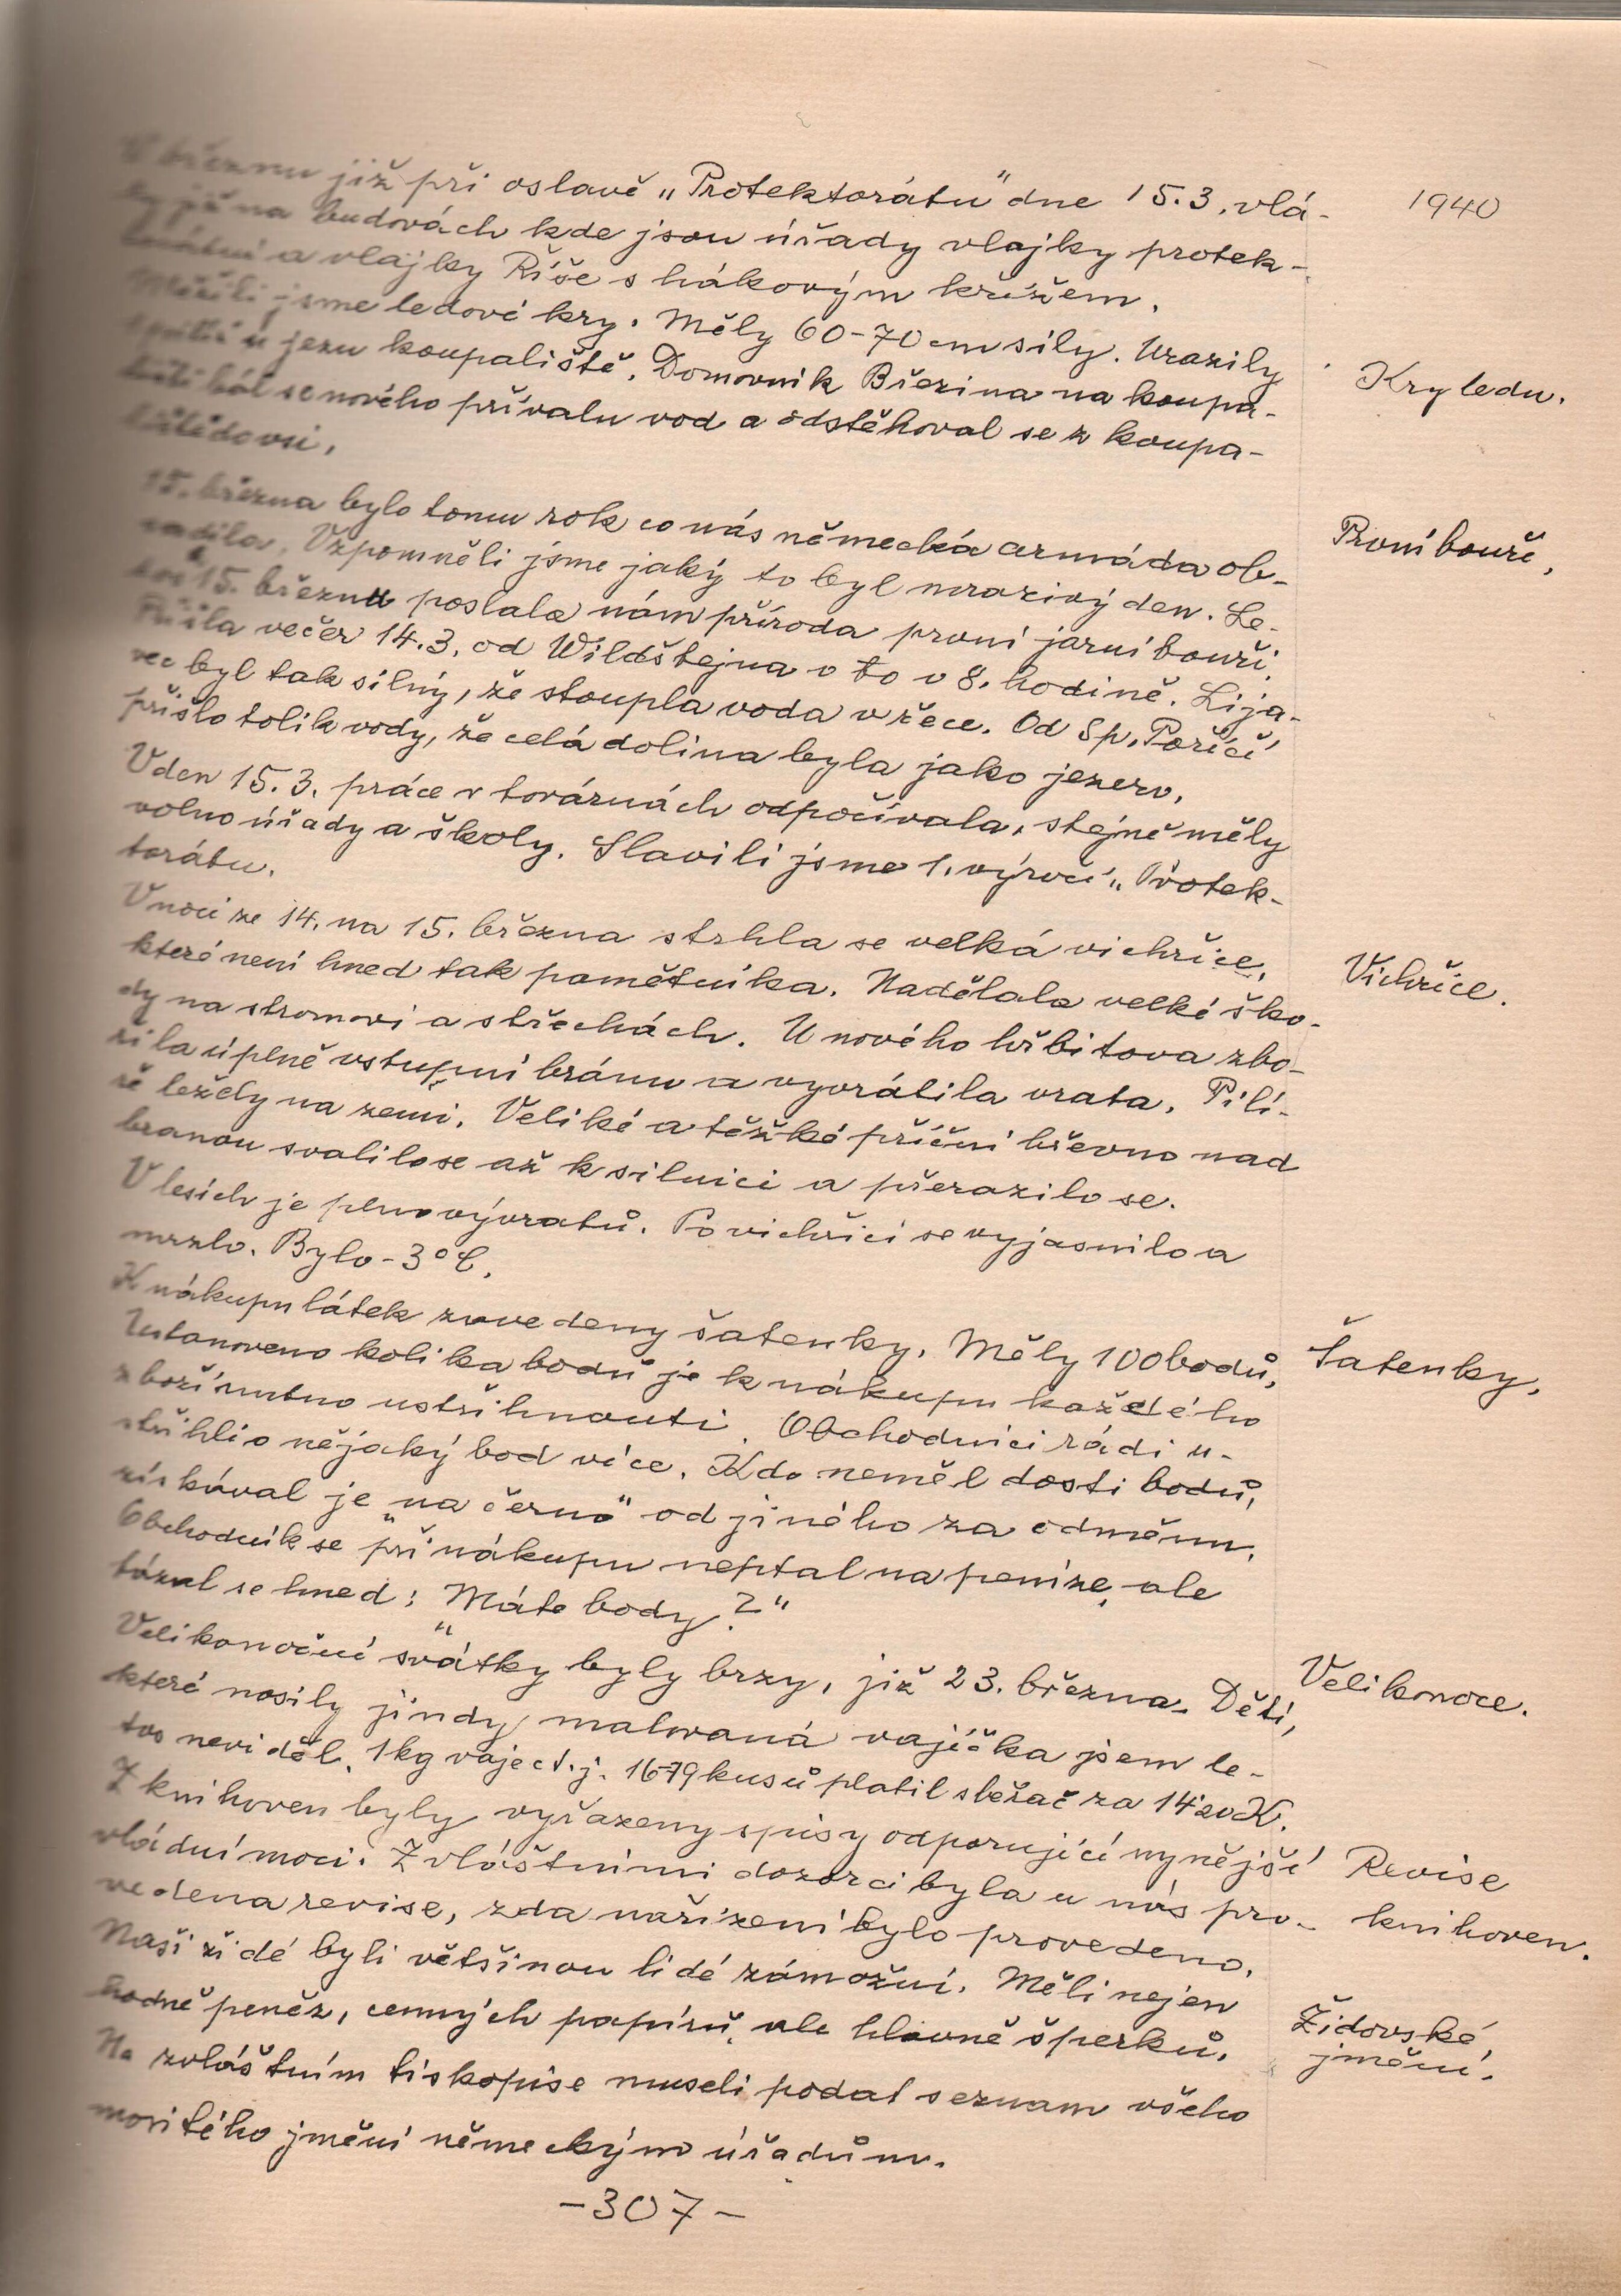 V březnu již při oslavě „Protektorátu" dne 15.3. vlá-
ly již na budovách kde jsou úřady vlajky protek-
torátní a vlajky Říše s hákovým křížem.
jsme ledové kry. Měly 60-70 cm síly. Urazily
u jezu koupaliště. Domovník Březina na koupa-
lišti bál se nového přívalu vod a odstěhoval se z koupa-
liště do vsi.
15. března bylo tomu rok co nás německá armáda ob-
sadila. Vzpomněli jsme jaký to byl mrazivý den. Le-
tos 15. březnu poslala nám příroda první jarní bouři.
Přišla večer 14.3. od Wildštejna v to v 8. hodině. Lija-
vec byl tak silný, že stoupla voda v řece. Od Sp. Poříčí
přišlo tolik vody, že celá dolina byla jako jezero.
V den 15.3. práce v továrnách odpočívala, stejně měly
volno úřady a školy. Slavili jsme 1. výročí „Protek-
torátu.
V noci ze 14. na 15. března strhla se velká vichřice,
které není hned tak pamětníka. Nadělala velké ško-
dy na stromoví a střechách. U nového hřbitova zbo-
řila úplně vstupní bránu a vyvrátila vrata. Pilí-
ře ležely na zemi. Veliké a těžké příční břevno nad
branou svalilo se až k silnici a přerazilo se.
V lesích je plno vývratů. Po vichřici se vyjasnilo a
mrzlo. Bylo -3°C.
K nákupu látek zavedeny šatenky. Měly 100 bodů,
Ustanoveno kolika bodů je k nákupu každého
zboží nutno ustřihnouti. Obchodníci rádi u-
střihli o nějaký bod více. Kdo neměl dosti bodů,
získával je „na černo" od jiného za odměnu.
Obchodník se při nákupu neptal na peníze, ale
tázal se hned: „Máte body?"
Velikonoční svátky byly brzy, již 23. března. Děti,
které nosily jindy malovaná vajíčka jsem le-
tos neviděl. 1 kg vajec t.j. 16-79 kusů platil sběrač za 14'20 K.
Z knihoven byly vyřazeny spisy odporující nynější
vládní moci. Zvláštními dozorci byla u nás pro-
vedena revise, zda nařízení bylo provedeno.
Naši židé byli většinou lidé zámožní. Měli nejen
hodně peněz, cenných papírů, ale hlavně šperků.
Na zvláštním tiskopise museli podat seznam všeho
movitého jmění německým úřadům.
-307-
1940
Kry ledu.
První bouře,
Vichřice.
Šatenky,
Velikonoce.
Revise
knihoven.
Židovské
jmění.